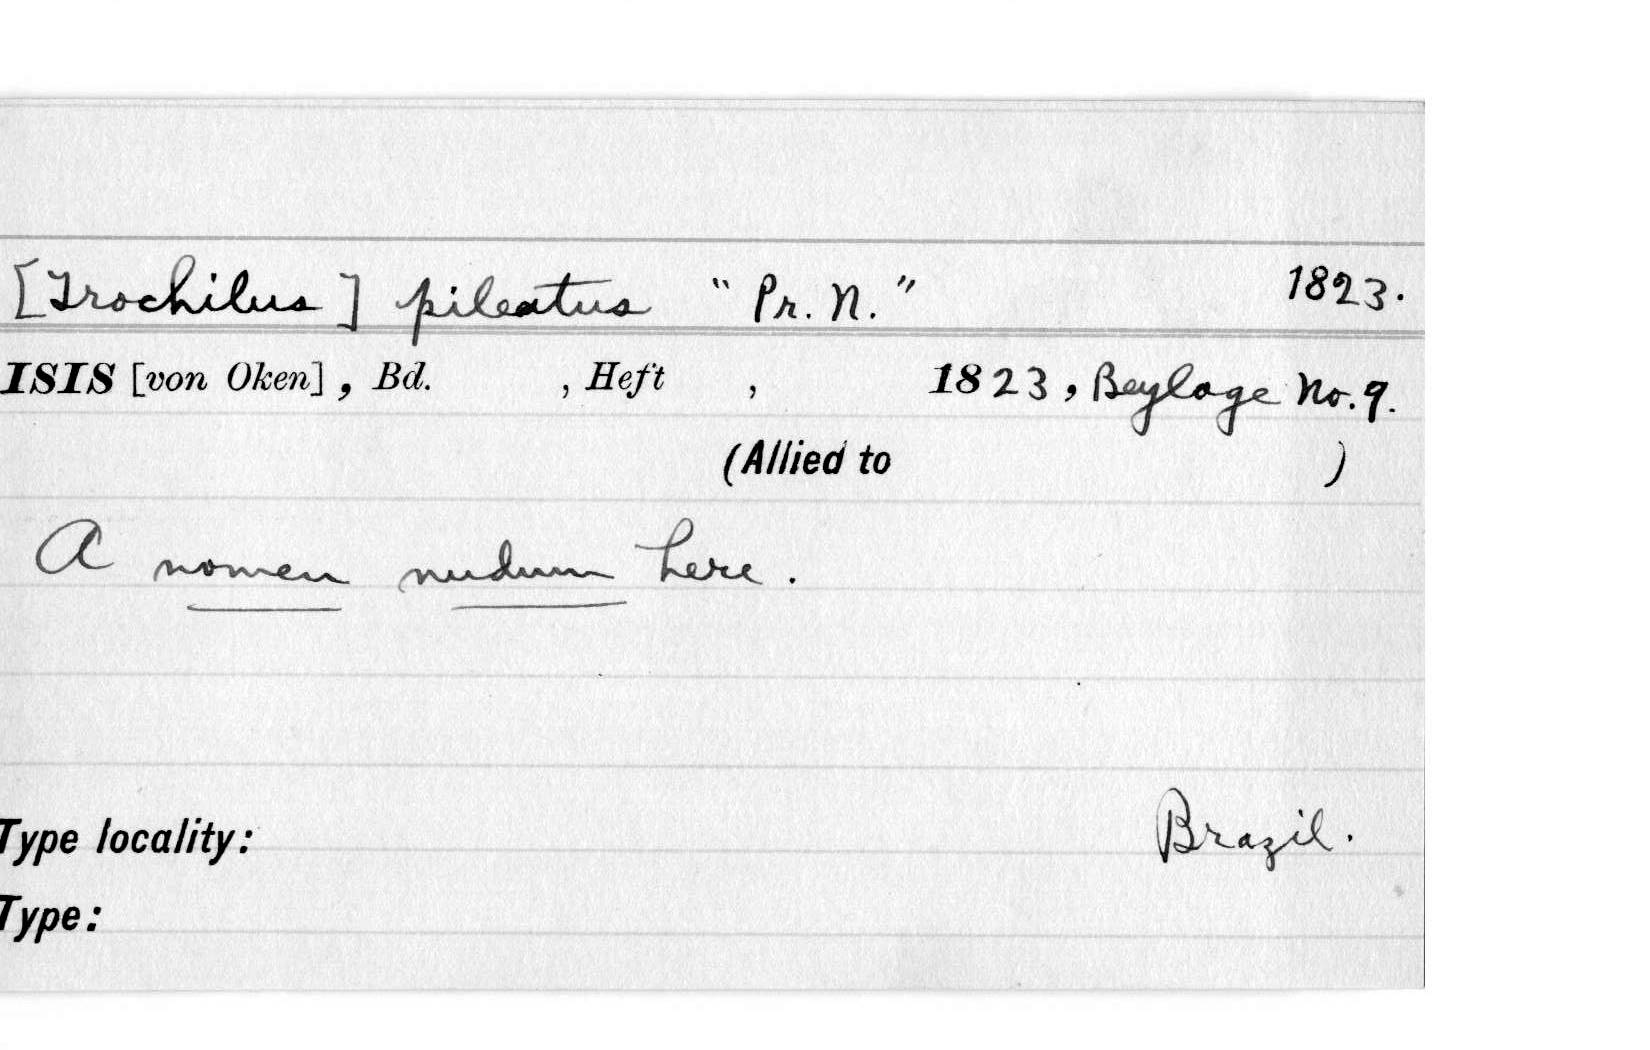 [Trochilus] pileatus "Pr. N." 1823.
ISIS [von Oken], Bd. , Heft , 1823, Beylage No. 9.
(Allied to )
A nomen nudum here.
Type locality: Brazil.
Type: